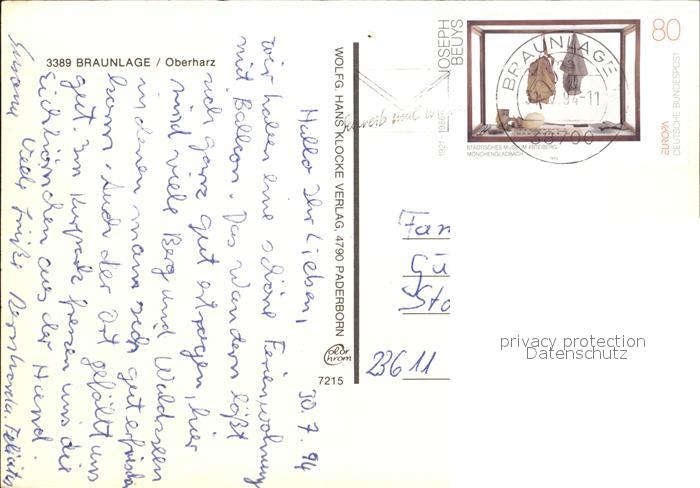 3389 BRAUNLAGE / Oberharz
30.7.94
Hallo Ihr Lieben,
wir haben eine schöne Ferienwohnung
mit Balkon. Das Wandern läßt
sich ganz gut ertragen, hier
sind viele Berg und Waldseen
in denen man sich gut erfrischen
kann. Auch der Ort gefällt uns
gut. Im Kurpark fressen uns die
Eichhörnchen aus der Hand.
Viele Grüße
WOLFG. HANS KLOCKE VERLAG, 4790 PADERBORN
color chrom
7215
Schreib mal
JOSEPH BEUYS
1921-1986
80
BRAUNLAGE
94-11
38700
STÄDTISCHES MUSEUM ABTEIBERG
MÖNCHENGLADBACH
1993
EUROPA
DEUTSCHE BUNDESPOST
Fam
Gü
Sto
23611
privacy protection
Datenschutz